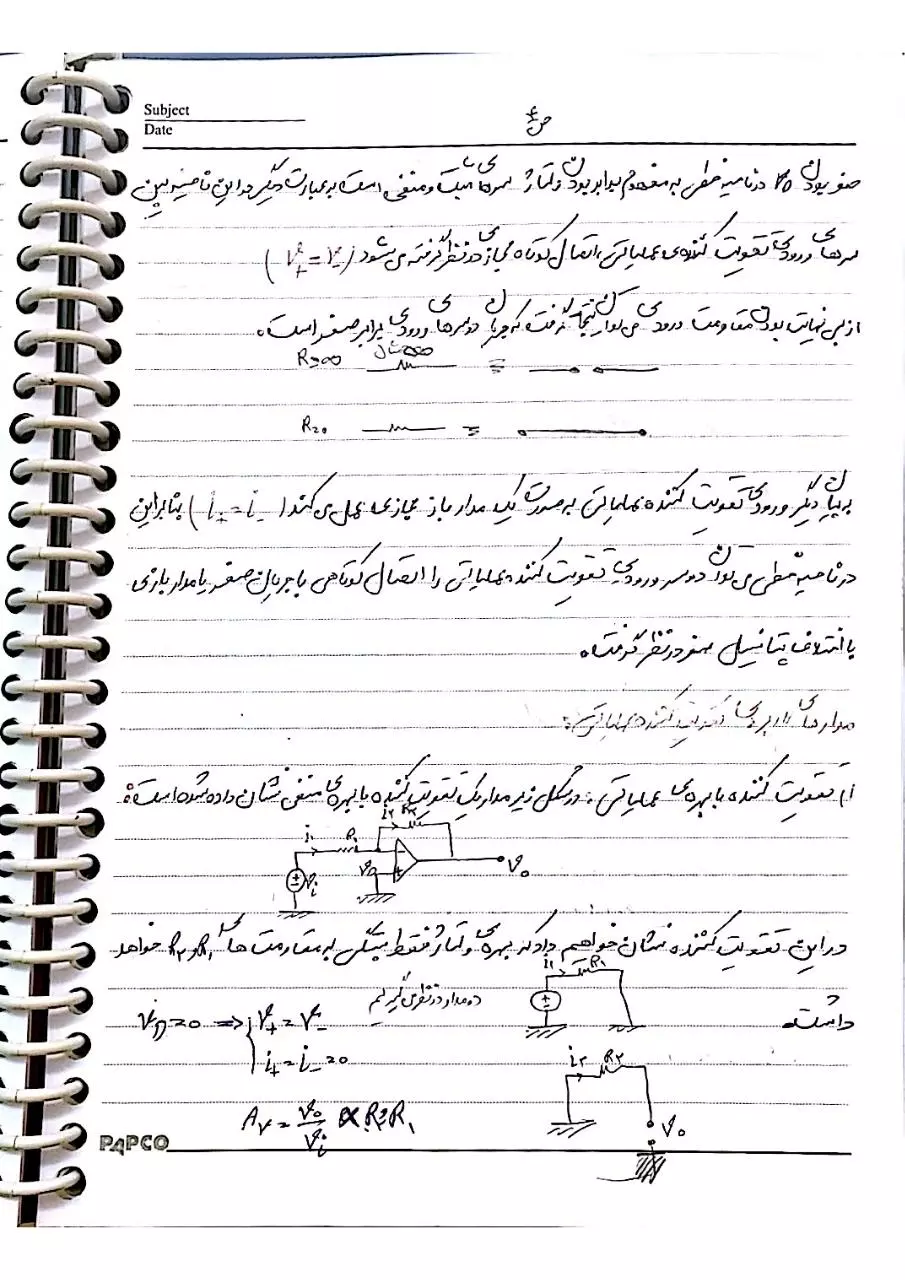 Subject
Date
ص۴
صفر بودن v₀ در ناحیه خطی به مفهوم برابر بودن ولتاژ سرهای مثبت و منفی است به عبارت دیگر در این ناحیه بین
سرهای ورودی تقویت کننده‌ی عملیاتی، اتصال کوتاه مجازی در نظر گرفته می شود (V₊ = V₋)
از بی نهایت بودن مقاومت ورودی می توان نتیجه گرفت که جریان در سرهای ورودی برابر صفر است.
R=∞ ≡
R=0 ≡
به بیان دیگر ورودی تقویت کننده عملیاتی به صورت یک مدار باز مجازی عمل می کند (i₊ = i₋) بنابراین
در ناحیه خطی می توان دو سر ورودی تقویت کننده عملیاتی را اتصال کوتاهی با جریان صفر یا مدار بازی
با اختلاف پتانسیل صفر در نظر گرفت.
مدارهای کاربردی تقویت کننده عملیاتی:
۱) تقویت کننده با بهره‌ی عملیاتی: در شکل زیر مدار یک تقویت کننده با بهره‌ی منفی نشان داده شده است:
i₁ R₁ i₂ R₂
Vi V₀
در این تقویت کننده نشان خواهیم داد که بهره‌ی ولتاژ فقط بستگی به مقاومت های R₁ و R₂ خواهد
داشت.
i₁ R₁
دو مدار در نظر می گیریم
=0 ⇒ { V₊ = V₋
i₊ = i₋ = 0
i₂ R₂
V₀
Av = V₀/Vi ∝ R₂, R₁
PAPCO